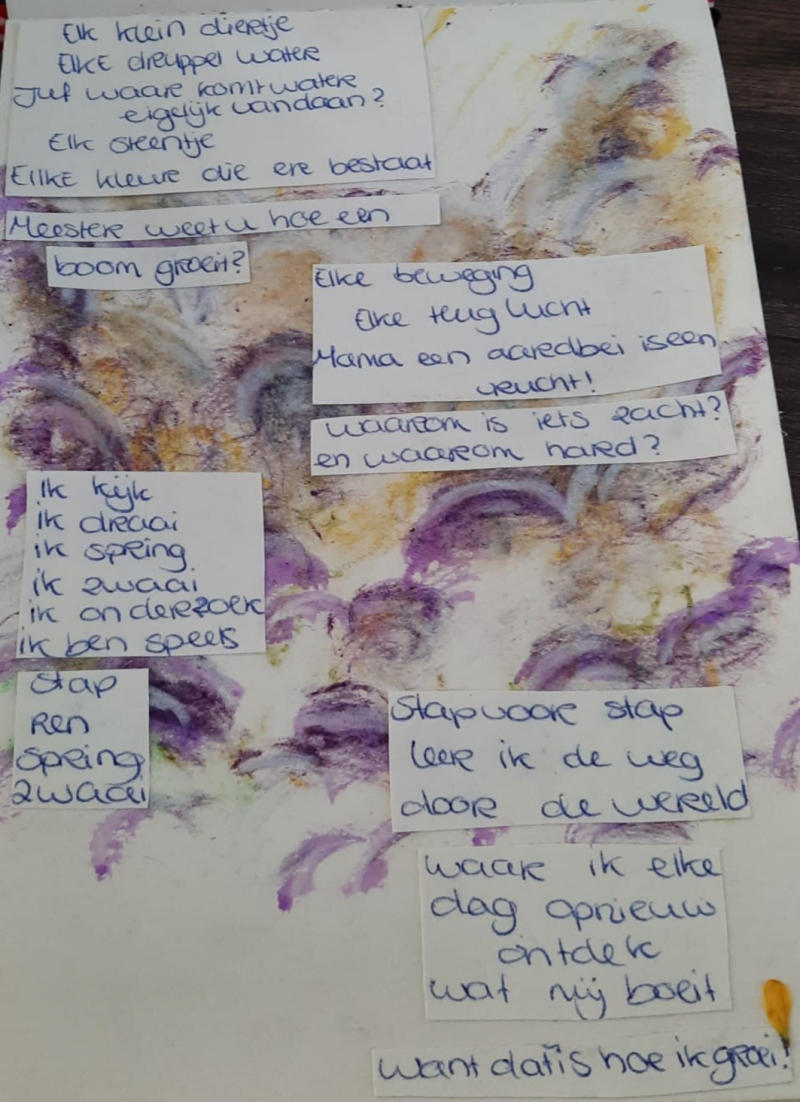 Elk klein diertje
Elke druppel water
Juf waar komt water
eigelijk vandaan?
Elk steentje
Elke kleur die er bestaat
Meester weet u hoe een
boom groeit?
Elke beweging
Elke teug lucht
Mama een aardbei is een
vrucht!
waarom is iets zacht?
en waarom hard?
ik kijk
ik draai
ik spring
ik zwaai
ik onderzoek
ik ben speels
Stap
Ren
Spring
zwaai
Stap voor stap
leer ik de weg
door de wereld
waar ik elke
dag opnieuw
ontdek
wat mij boeit
want dat is hoe ik groei!